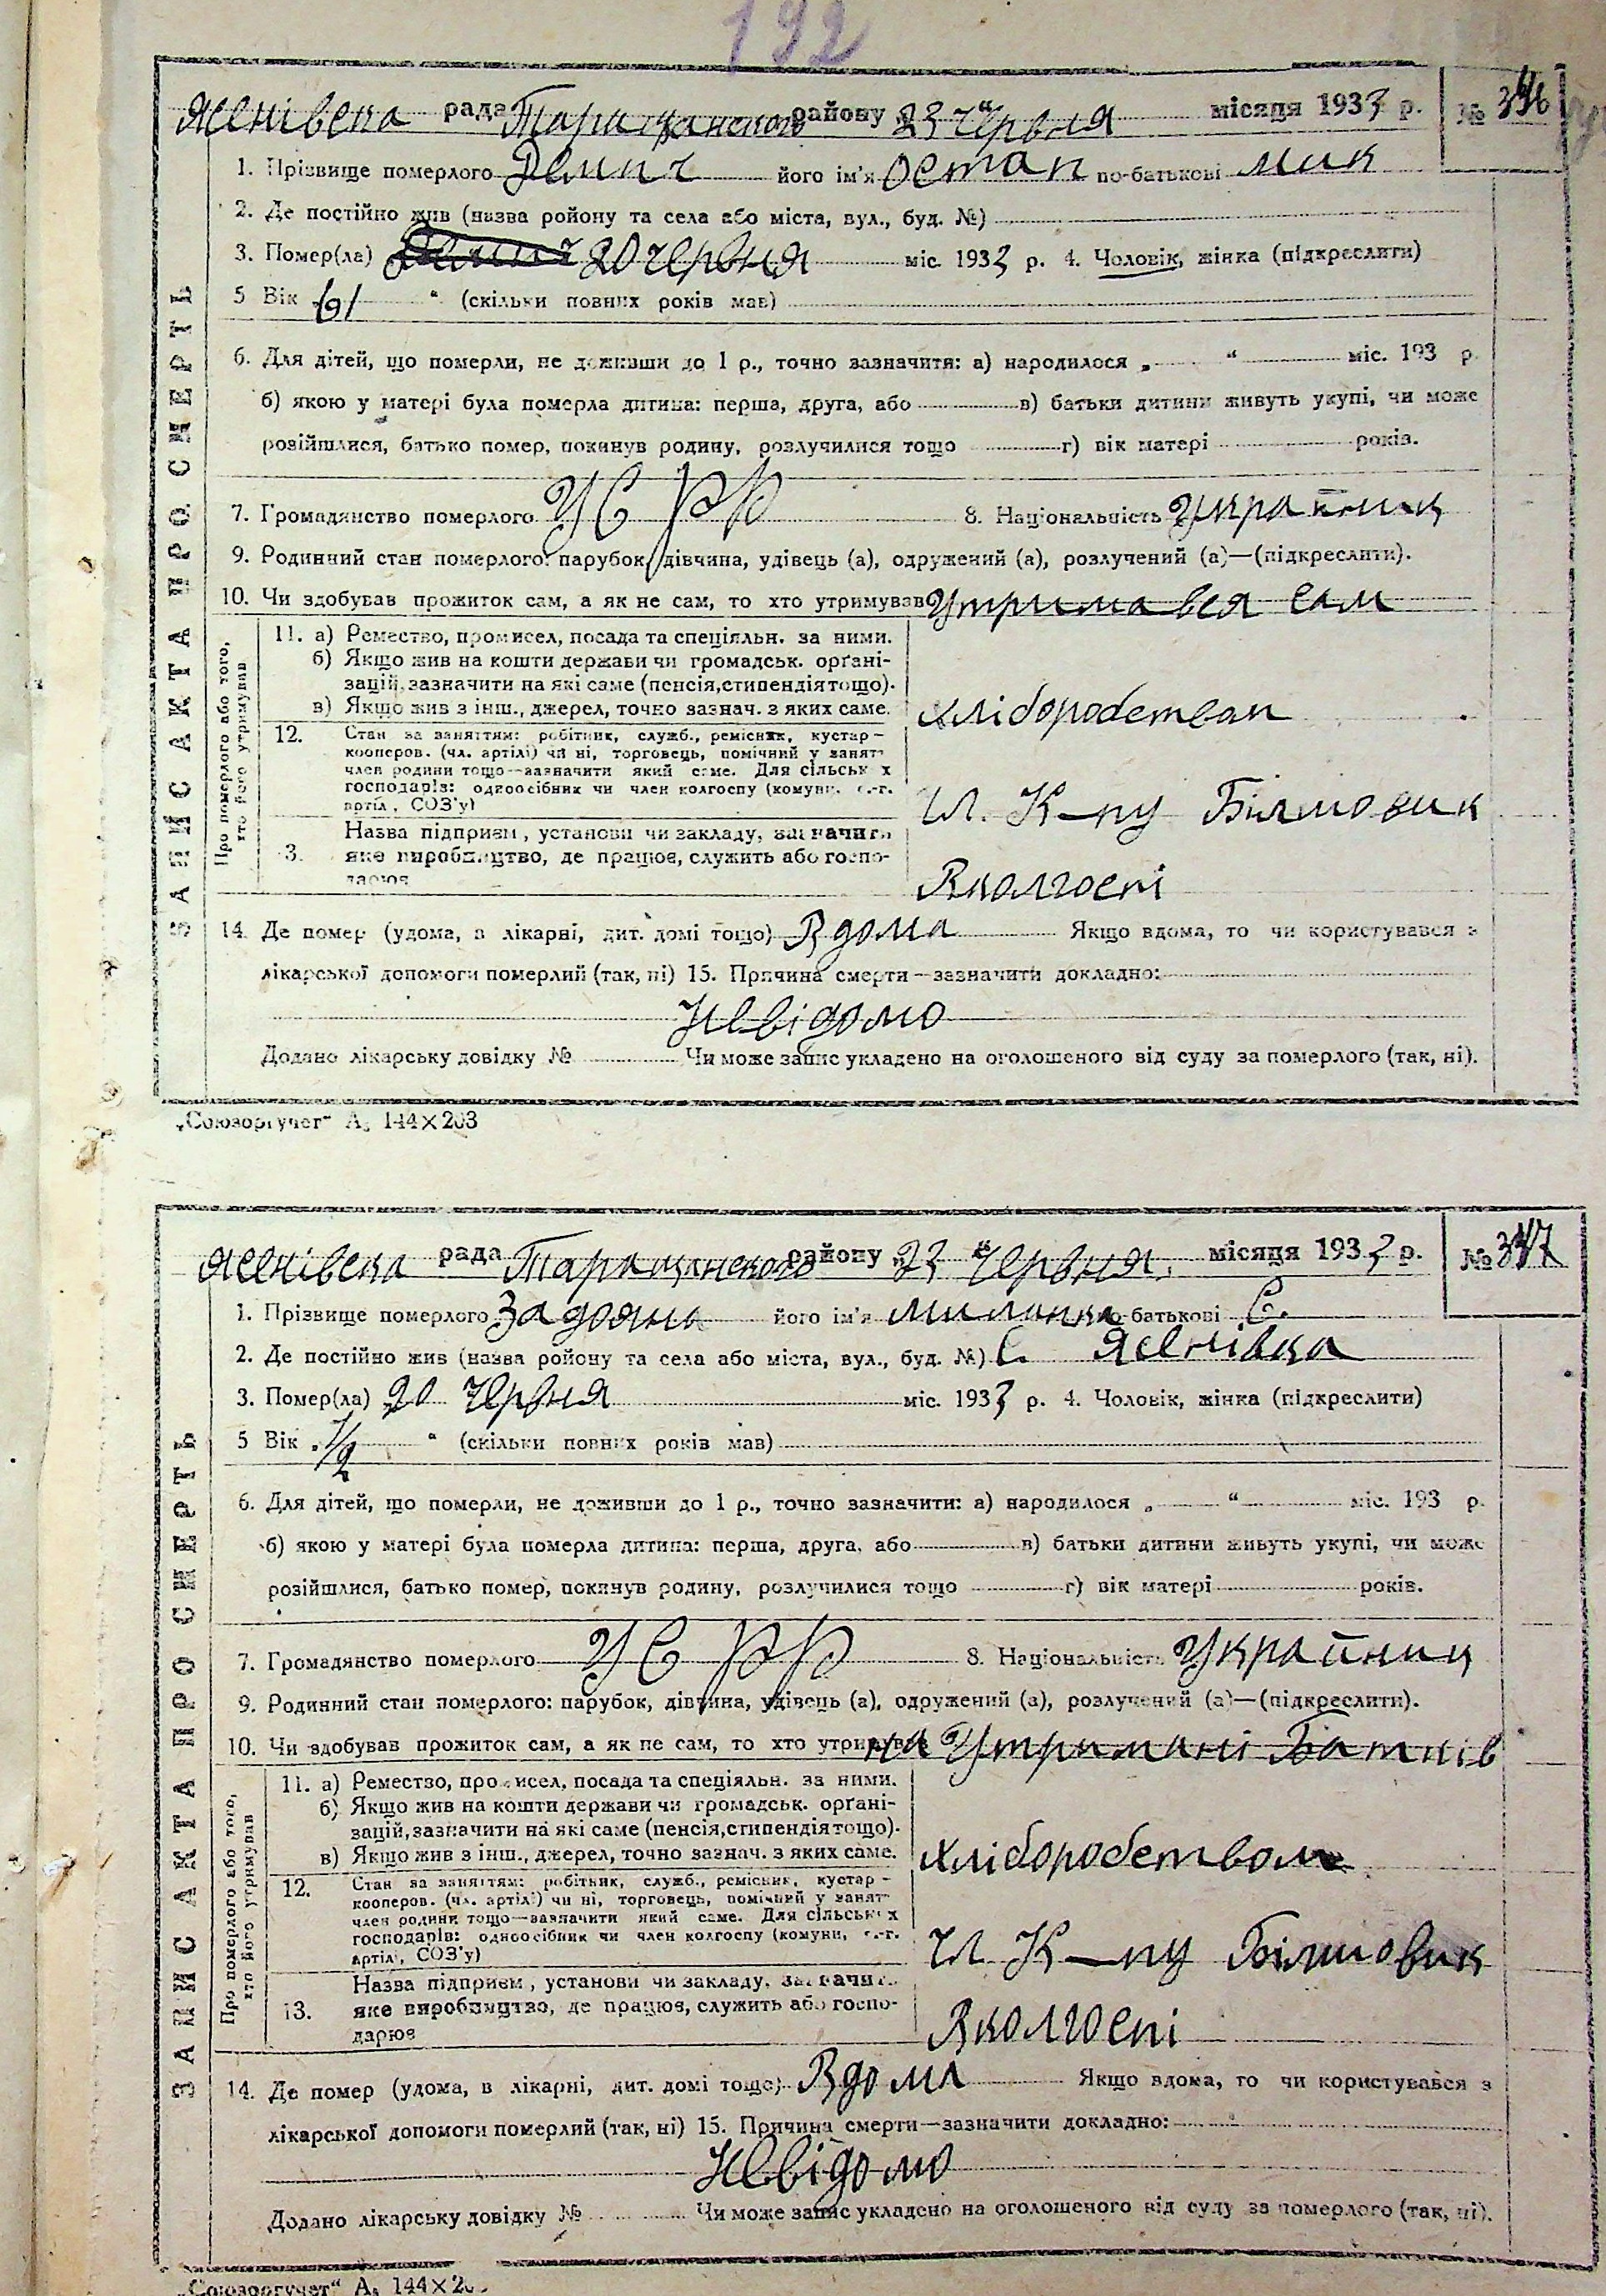 192
Ясенівска рада Таращанского району „23“ Червня місяця 1933 р. № 346
1. Прізвище померлого Демич його ім'я Остап по-батькові Мик
2. Де постійно жив (назва ройону та села або міста, вул., буд. №)
3. Помер(ла) 20 червня міс. 1933 р. 4. Чоловік, жінка (підкреслити)
5 Вік 61 “ (скільки повних років мав)
6. Для дітей, що померли, не доживши до 1 р., точно зазначити: а) народилося „ “ міс. 193 р.
б) якою у матері була померла дитина: перша, друга, або в) батьки дитини живуть укупі, чи може
розійшлися, батько помер, покинув родину, розлучилися тощо г) вік матері років.
7. Громадянство померлого УСРР 8. Національність Українц
9. Родинний стан померлого: парубок, дівчина, удівець (а), одружений (а), розлучений (а)—(підкреслити).
10. Чи здобував прожиток сам, а як не сам, то хто утримував Утримався сам
ЗАПИС АКТА ПРО СМЕРТЬ
Про померлого або того,
хто його утримував
11. а) Ремество, промисел, посада та спеціяльн. за ними.
б) Якщо жив на кошти держави чи громадськ. орґані-
зацій, зазначити на які саме (пенсія, стипендія тощо).
в) Якщо жив з інш., джерел, точно зазнач. з яких саме.
хліборобством
12. Стан за заняттям: робітник, служб., ремісник, кустар-
кооперов. (чл. артілі) чи ні, торговець, помічний у занят
член родини тощо—зазначити який саме. Для сільськ х
господарів: одноосібник чи член колгоспу (комуни, с.-г.
артіл, СОЗ'у)
Чл. К-пу Більшовик
3. Назва підприєм, установи чи закладу, зазначити
яке виробництво, де працює, служить або госпо-
дарює
В колгоспі
14. Де помер (удома, в лікарні, дит. домі тощо) Вдома Якщо вдома, то чи користувався з
лікарської допомоги померлий (так, ні) 15. Причина смерти—зазначити докладно:
Невідомо
Додано лікарську довідку № Чи може запис укладено на оголошеного від суду за померлого (так, ні).
„Союзоргучет“ А, 144×203
Ясенівска рада Таращанского району „23“ Червня місяця 1933 р. № 347
1. Прізвище померлого його ім'я Миланка по-батькові С.
2. Де постійно жив (назва ройону та села або міста, вул., буд. №) С. Ясенівка
3. Помер(ла) 20 Червня міс. 1933 р. 4. Чоловік, жінка (підкреслити)
5 Вік 1/2 “ (скільки повних років мав)
6. Для дітей, що померли, не доживши до 1 р., точно зазначити: а) народилося „ “ міс. 193 р.
б) якою у матері була померла дитина: перша, друга, або в) батьки дитини живуть укупі, чи може
розійшлися, батько помер, покинув родину, розлучилися тощо г) вік матері років.
7. Громадянство померлого УСРР 8. Національність Українц
9. Родинний стан померлого: парубок, дівчина, удівець (а), одружений (а), розлучений (а)—(підкреслити).
10. Чи здобував прожиток сам, а як не сам, то хто утримував на Утримані Батків
ЗАПИС АКТА ПРО СМЕРТЬ
Про померлого або того,
хто його утримував
11. а) Ремество, промисел, посада та спеціяльн. за ними.
б) Якщо жив на кошти держави чи громадськ. орґані-
зацій, зазначити на які саме (пенсія, стипендія тощо).
в) Якщо жив з інш., джерел, точно зазнач. з яких саме.
хліборобством
12. Стан за заняттям: робітник, служб., ремісник, кустар-
кооперов. (чл. артілі) чи ні, торговець, помічний у занят
член родини тощо—зазначити який саме. Для сільськ х
господарів: одноосібник чи член колгоспу (комуни, с.-г.
артіл, СОЗ'у)
Чл К-пу Більшовик
13. Назва підприєм, установи чи закладу, зазначити
яке виробництво, де працює, служить або госпо-
дарює
В колгоспі
14. Де помер (удома, в лікарні, дит. домі тощо) Вдома Якщо вдома, то чи користувався з
лікарської допомоги померлий (так, ні) 15. Причина смерти—зазначити докладно:
Невідомо
Додано лікарську довідку № Чи може запис укладено на оголошеного від суду за померлого (так, ні).
„Союзоргучет“ А, 144×20